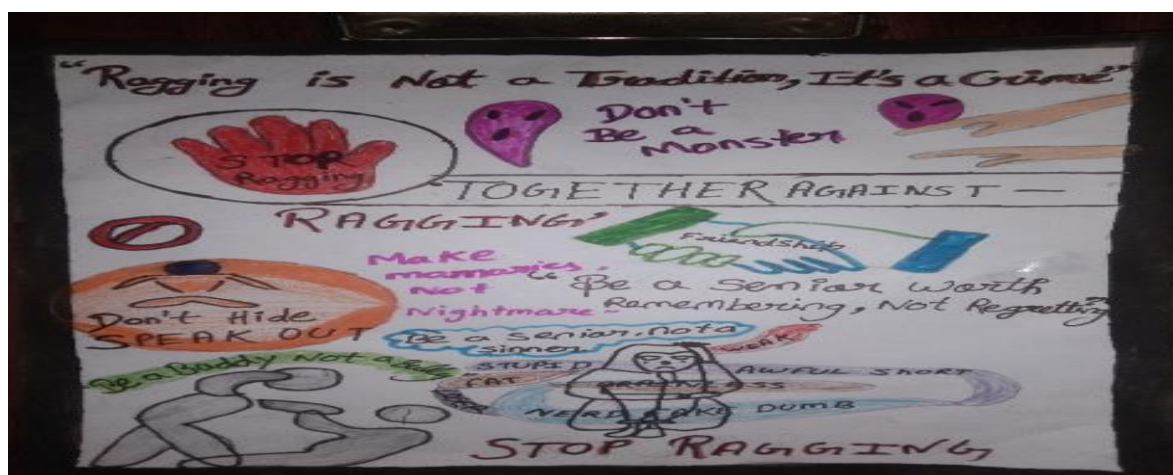 "Ragging is Not a Tradition, It's a Crime"
STOP
Ragging
Don't
Be a
Monster
"TOGETHER AGAINST —
RAGGING"
Friendship
Make
mamaries.
Not
Nightmare-
"Be a Senior worth
Remembering, Not Regretting"
Don't Hide
SPEAK OUT
Be a Senior, not a
sinner
WEAK
Be a Buddy Not a Bully
STUPID
AWFUL SHORT
FAT
NERD FAKE DUMB
STOP RAGGING